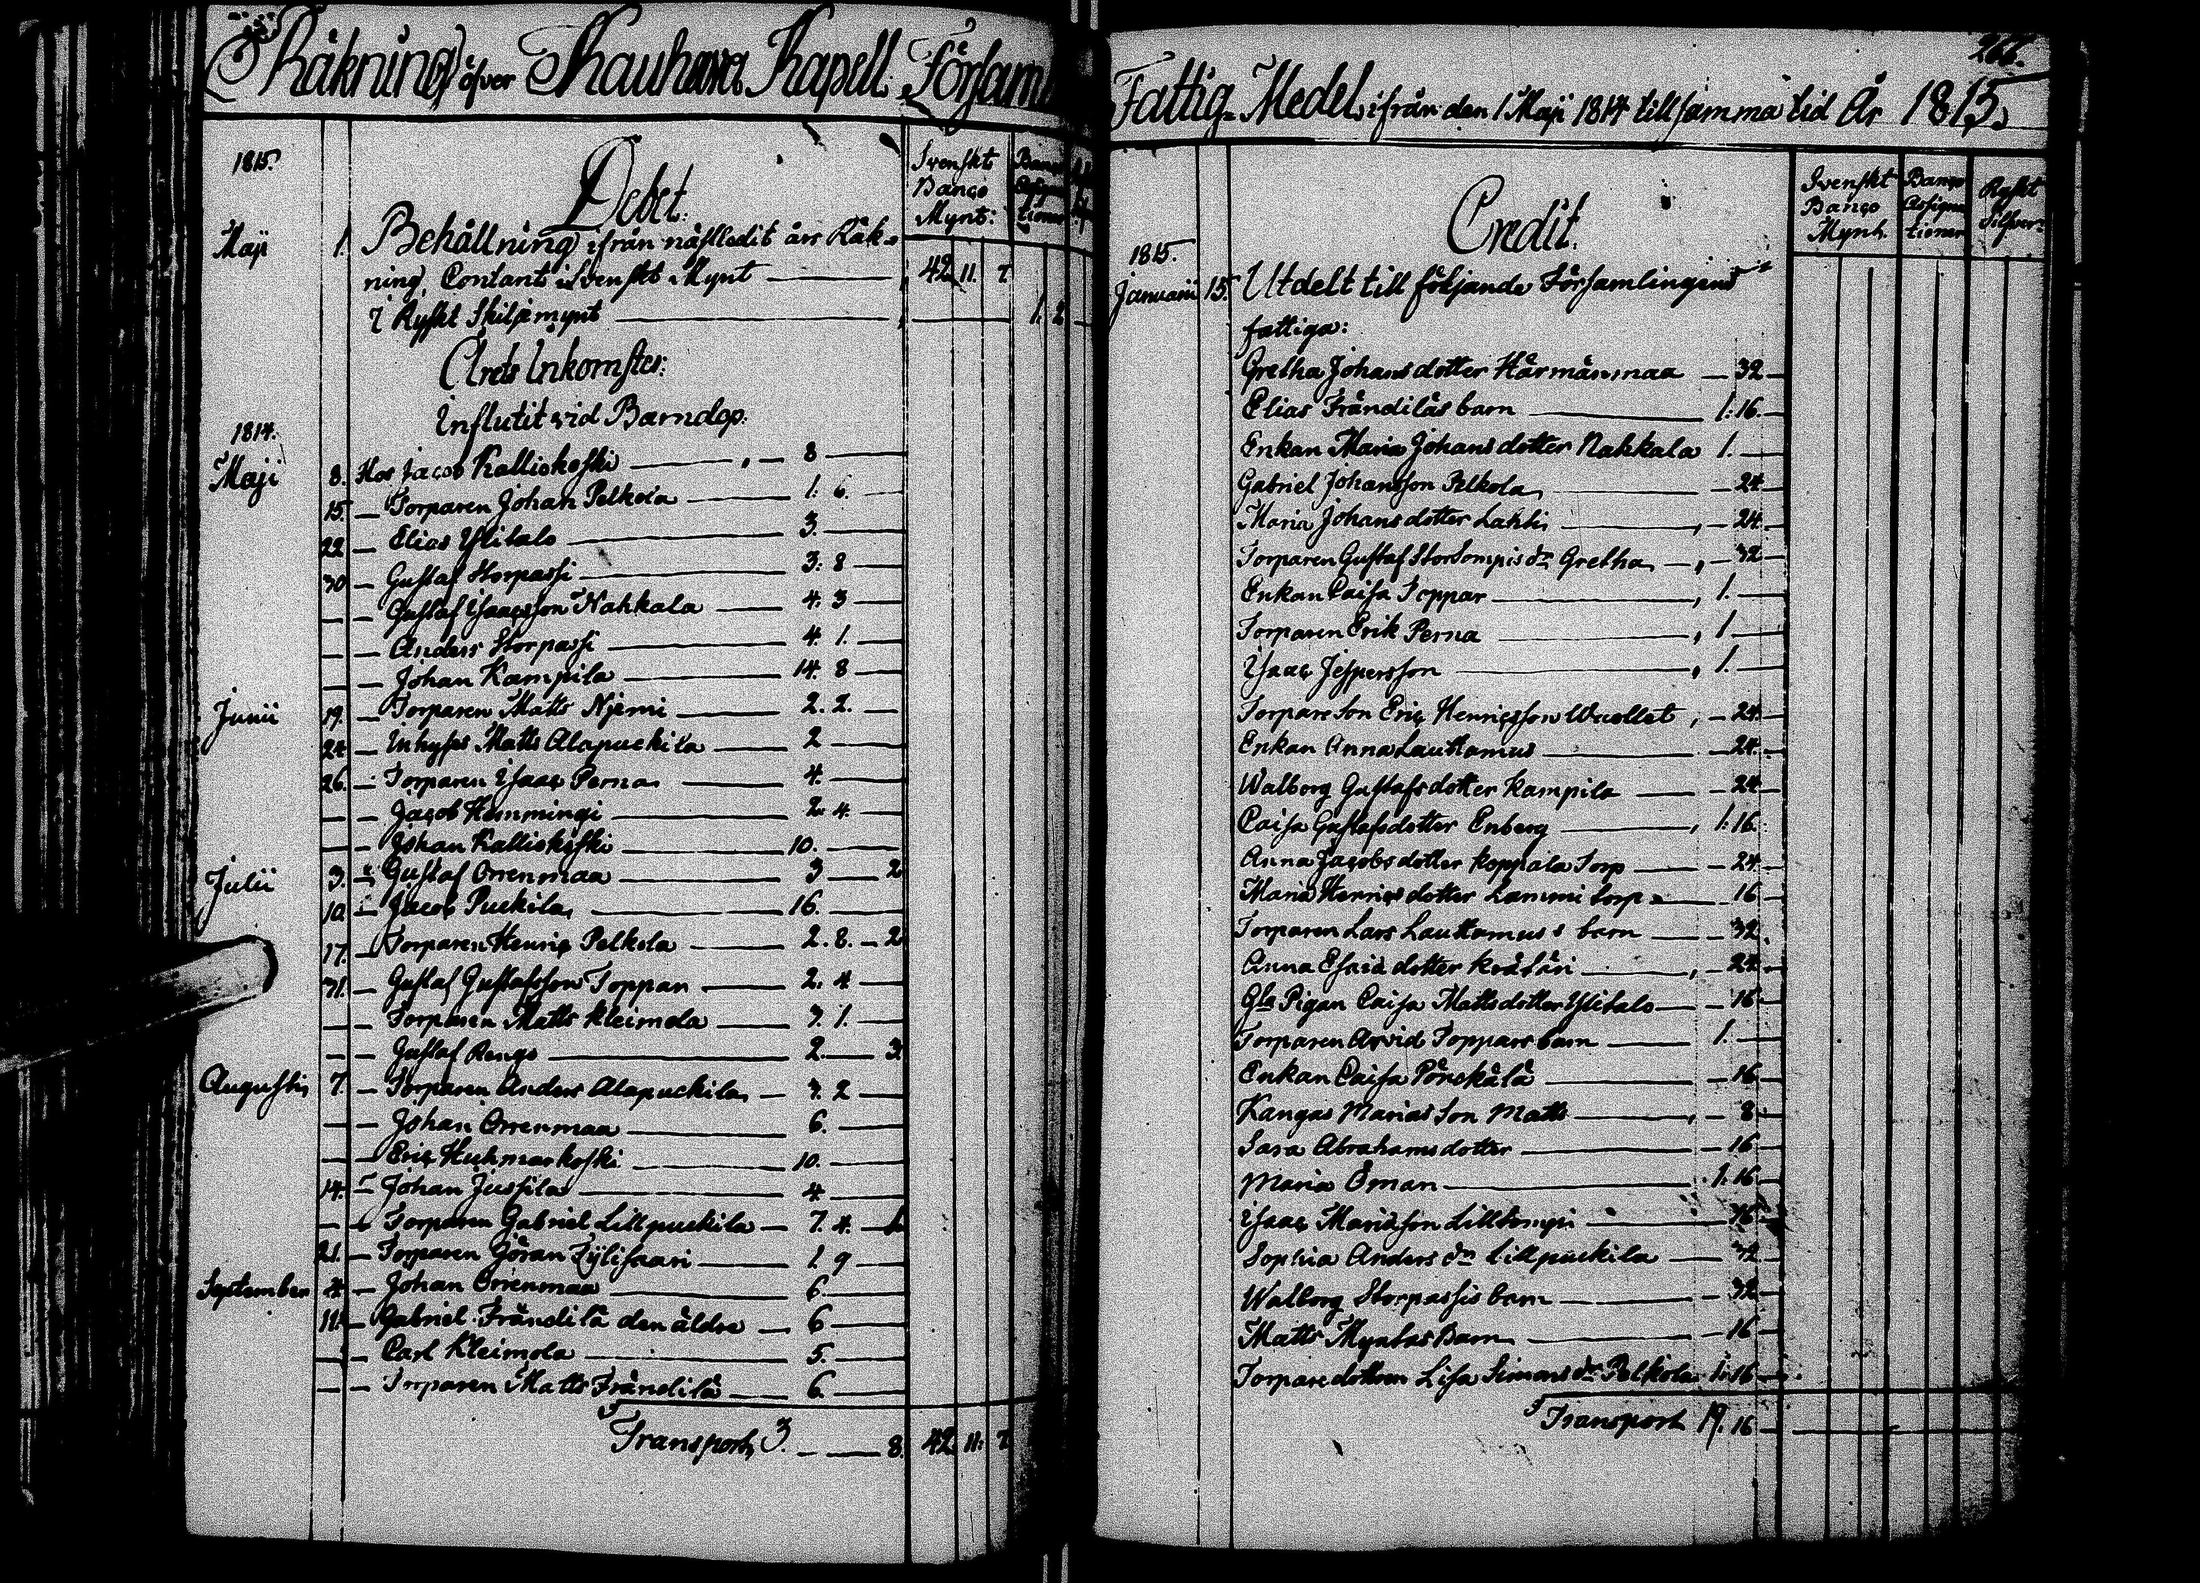 Räkning öfver Kauhava Kapell Församl
1815.
Debet.
Svenskt Banco Mynt:
Maji 1. Behållning ifrån nästledit års Räk-
ning, Contant i Svenskt Mynt — 42. 11. 7
i Ryskt Skiljemynt — 1. 2
Årets Inkomster:
Influtit vid Barndop:
1814.
Maji 8. Hos Jacob Kallioskoski — 8 —
15. — Torparen Johan Pelkola — 1. 6. —
22 — Elias Ylitalo — 3. —
30 — Gustaf Storpassi — 3: 8 —
— — Gustaf Isaacsson Nahkala — 4. 3 —
— — Anders Storpassi — 4. 1. —
— — Johan Kampila — 14. 8 —
Junii 19. — Torparen Matts Njemi — 2. 2. —
24 — Inhyses Matts Alapuckila — 2 —
26. — Torparen Isaac Perna — 4. —
— — Jacob Hemmingi — 2. 4. —
— — Johan Kallioskoski — 10. —
Julii 3. — Gustaf Orrenmaa — 3 — 2
10 — Jacob Puckila — 16. —
17. — Torparen Henric Pelkola — 2. 8. — 2
31. — Gustaf Gustafsson Toppan — 2. 4 —
— — Torparen Matts Kleimola — 3. 1. —
— — Gustaf Rengo — 2. — 3.
Augusti 7. — Torparen Anders Alapuckila — 3. 2 —
— — Johan Orrenmaa — 6. —
— — Eric Huhmarkoski — 10. —
14. — Johan Jussila — 4 —
— — Torparen Gabriel Lillpuckila — 7. 4. —
21. — Torparen Göran Fylisaari — 1. 9 —
September 4 — Johan Orrenmaa — 6. —
11. — Gabriel Frändilä den äldre — 6 —
— — Carl Kleimola — 5. —
— — Torparen Matts Frändilä — 6. —
Transport 3. — 8. 42. 11. 7
Fattig-Medel, ifrån den 1 Maji 1814 till samma tid År 1815.
Credit.
Svenskt Banco Mynt.
Banco Assigna tioner
Ryskt Silfver
1815.
Januarii 15. Utdelt till följande Församlingens
fattiga:
Gretha Johansdotter Härmänmaa — 32 —
Elias Frändiläs barn — 1: 16. —
Enkan Maria Johansdotter Nahkala 1. —
Gabriel Johansson Pelkola — 24 —
Maria Johansdotter Lahti — 24 —
Torparen Gustaf Stortompis dr Gretha — 32 —
Enkan Caisa Toppar — 1. —
Torparen Erik Perna — 1 —
Isaac Jespersson — 1. —
Torpare Son Eric Henricsson Wuollet — 24 —
Enkan Anna Lauttamus — 24. —
Walborg Gustafsdotter Kampila — 24 —
Caisa Gustafsdotter Enberg — 1: 16.
Anna Jacobsdotter Koppala Torp — 24 —
Maria Henricsdotter Lammi Torp — 16 —
Torparen Lars Lauttamus's barn — 32.
Anna Esaiædotter — 24 —
Gla Pigan Caisa Mattsdotter Ylitalo — 16 —
Torparen Arvid Toppars barn — 1. —
Enkan Caisa Pörckälä — 16 —
Kangas Marias Son Matts — 8 —
Sara Abrahamsdotter — 16 —
Maria Öman — 1. 16 —
Isaac Mariæson Lilltompi — 16
Sophia Anders dr Lillpuckila — 32 —
Walborg Storpassis barn — 32 —
Matts Myntas Barn — 16 —
Torparedottren Lisa Simonsdr Pelkola 1: 16 —
Transport 19. 16 —